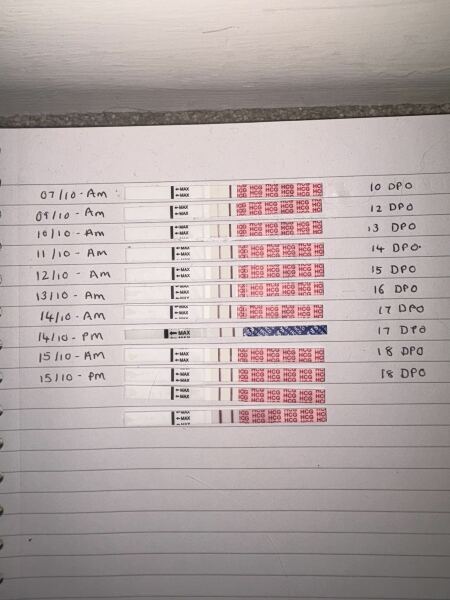 07/10 - Am ←MAX HCG HCG HCG HCG 10 DPO
09/10 - Am ←MAX HCG HCG HCG HCG 12 DPO
10/10 - Am ←MAX HCG HCG HCG HCG 13 DPO
11/10 - Am ←MAX HCG HCG HCG HCG 14 DPO.
12/10 - Am ←MAX HCG HCG HCG HCG 15 DPO
13/10 - Am ←MAX HCG HCG HCG HCG 16 DPO
14/10 - Am ←MAX HCG HCG HCG HCG 17 DPO
14/10 - PM ←MAX 17 DPO
15/10 - Am ←MAX HCG HCG HCG HCG 18 DPO
15/10 - PM ←MAX HCG HCG HCG HCG 18 DPO
←MAX HCG HCG HCG HCG
←MAX HCG HCG HCG HCG